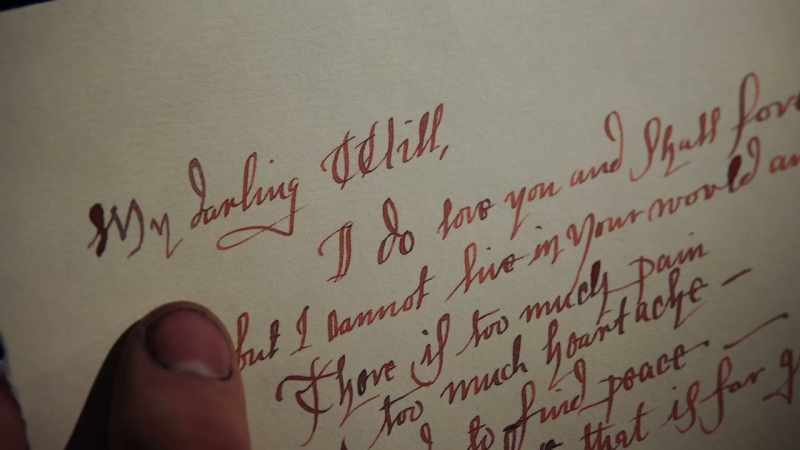 My darling Will,
I do love you and shall
but I cannot live in your world
There is too much pain
too much heartache –
to find peace –
that is far